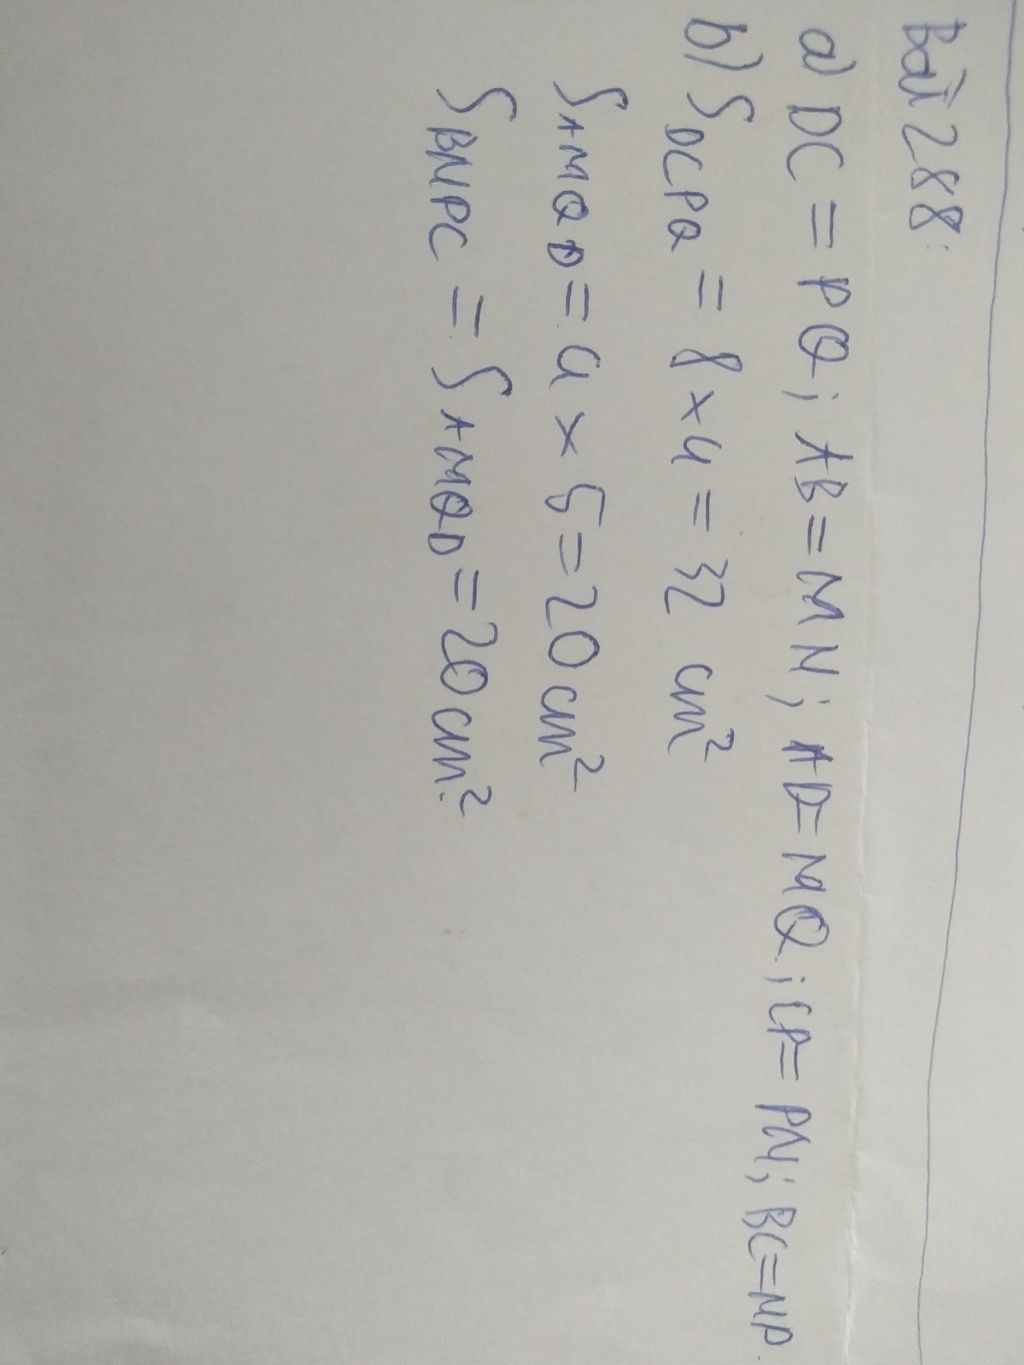 Bài 288:
a) DC = PQ; AB = MN; AD = MQ; CP = PN; BC = NP.
b) S DCPQ = 8 x 4 = 32 cm²
S AMQD = 4 x 5 = 20 cm²
S BNPC = S AMQD = 20 cm²